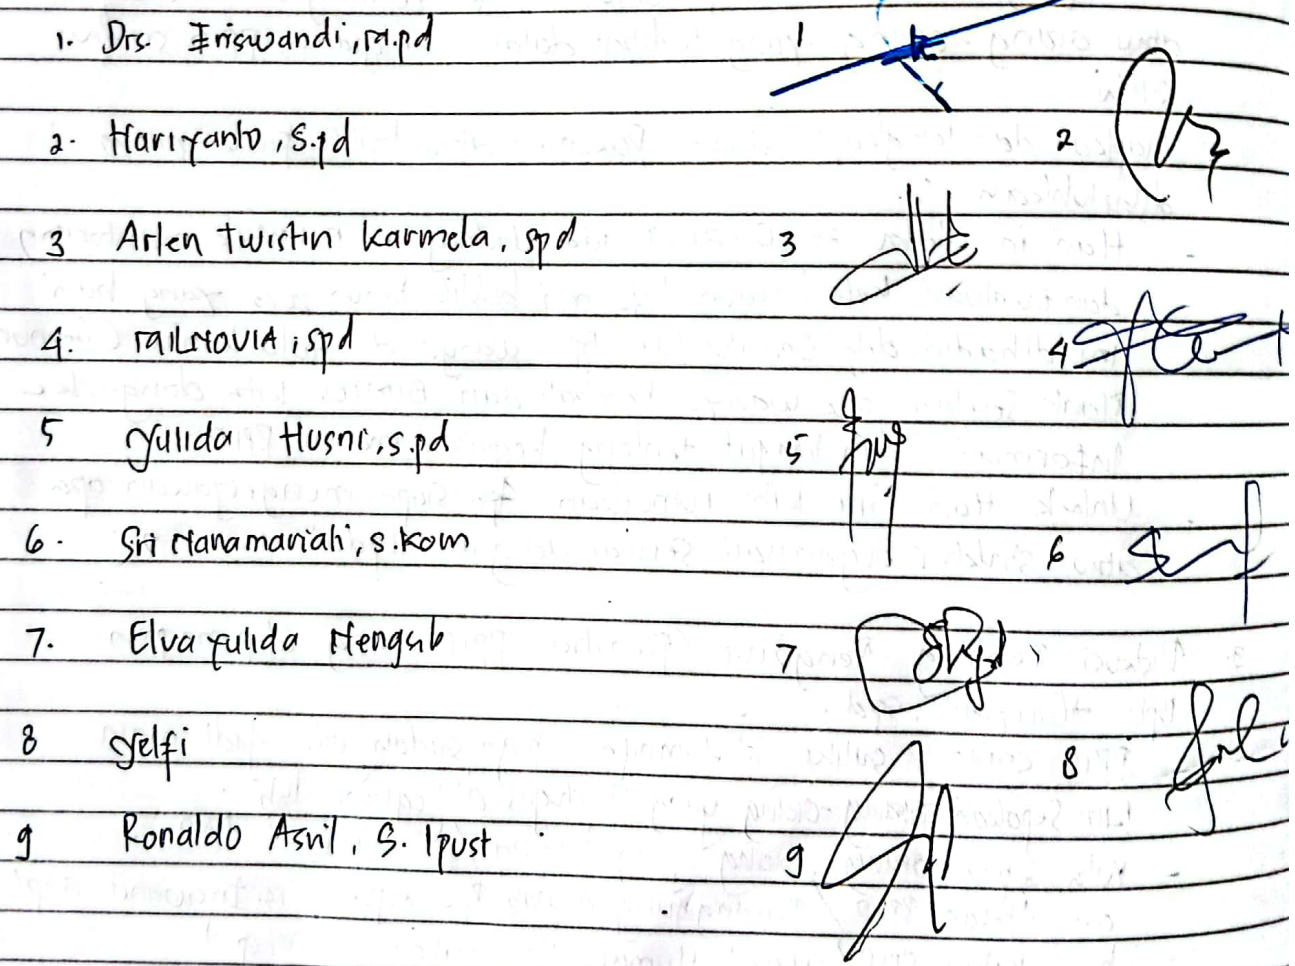 1. Drs. Eriswandi, M.pd 1
2. Hariyanto, S.pd 2
3 Arlen Twistin Karmela, spd 3
4. MAILNOVIA, spd 4
5 Yulida Husni, s.pd 5
6. Sri Manamariah, s.Kom 6
7. Elva Yulida 7
8 Yelfi 8
9 Ronaldo Asril, S. Ipust 9